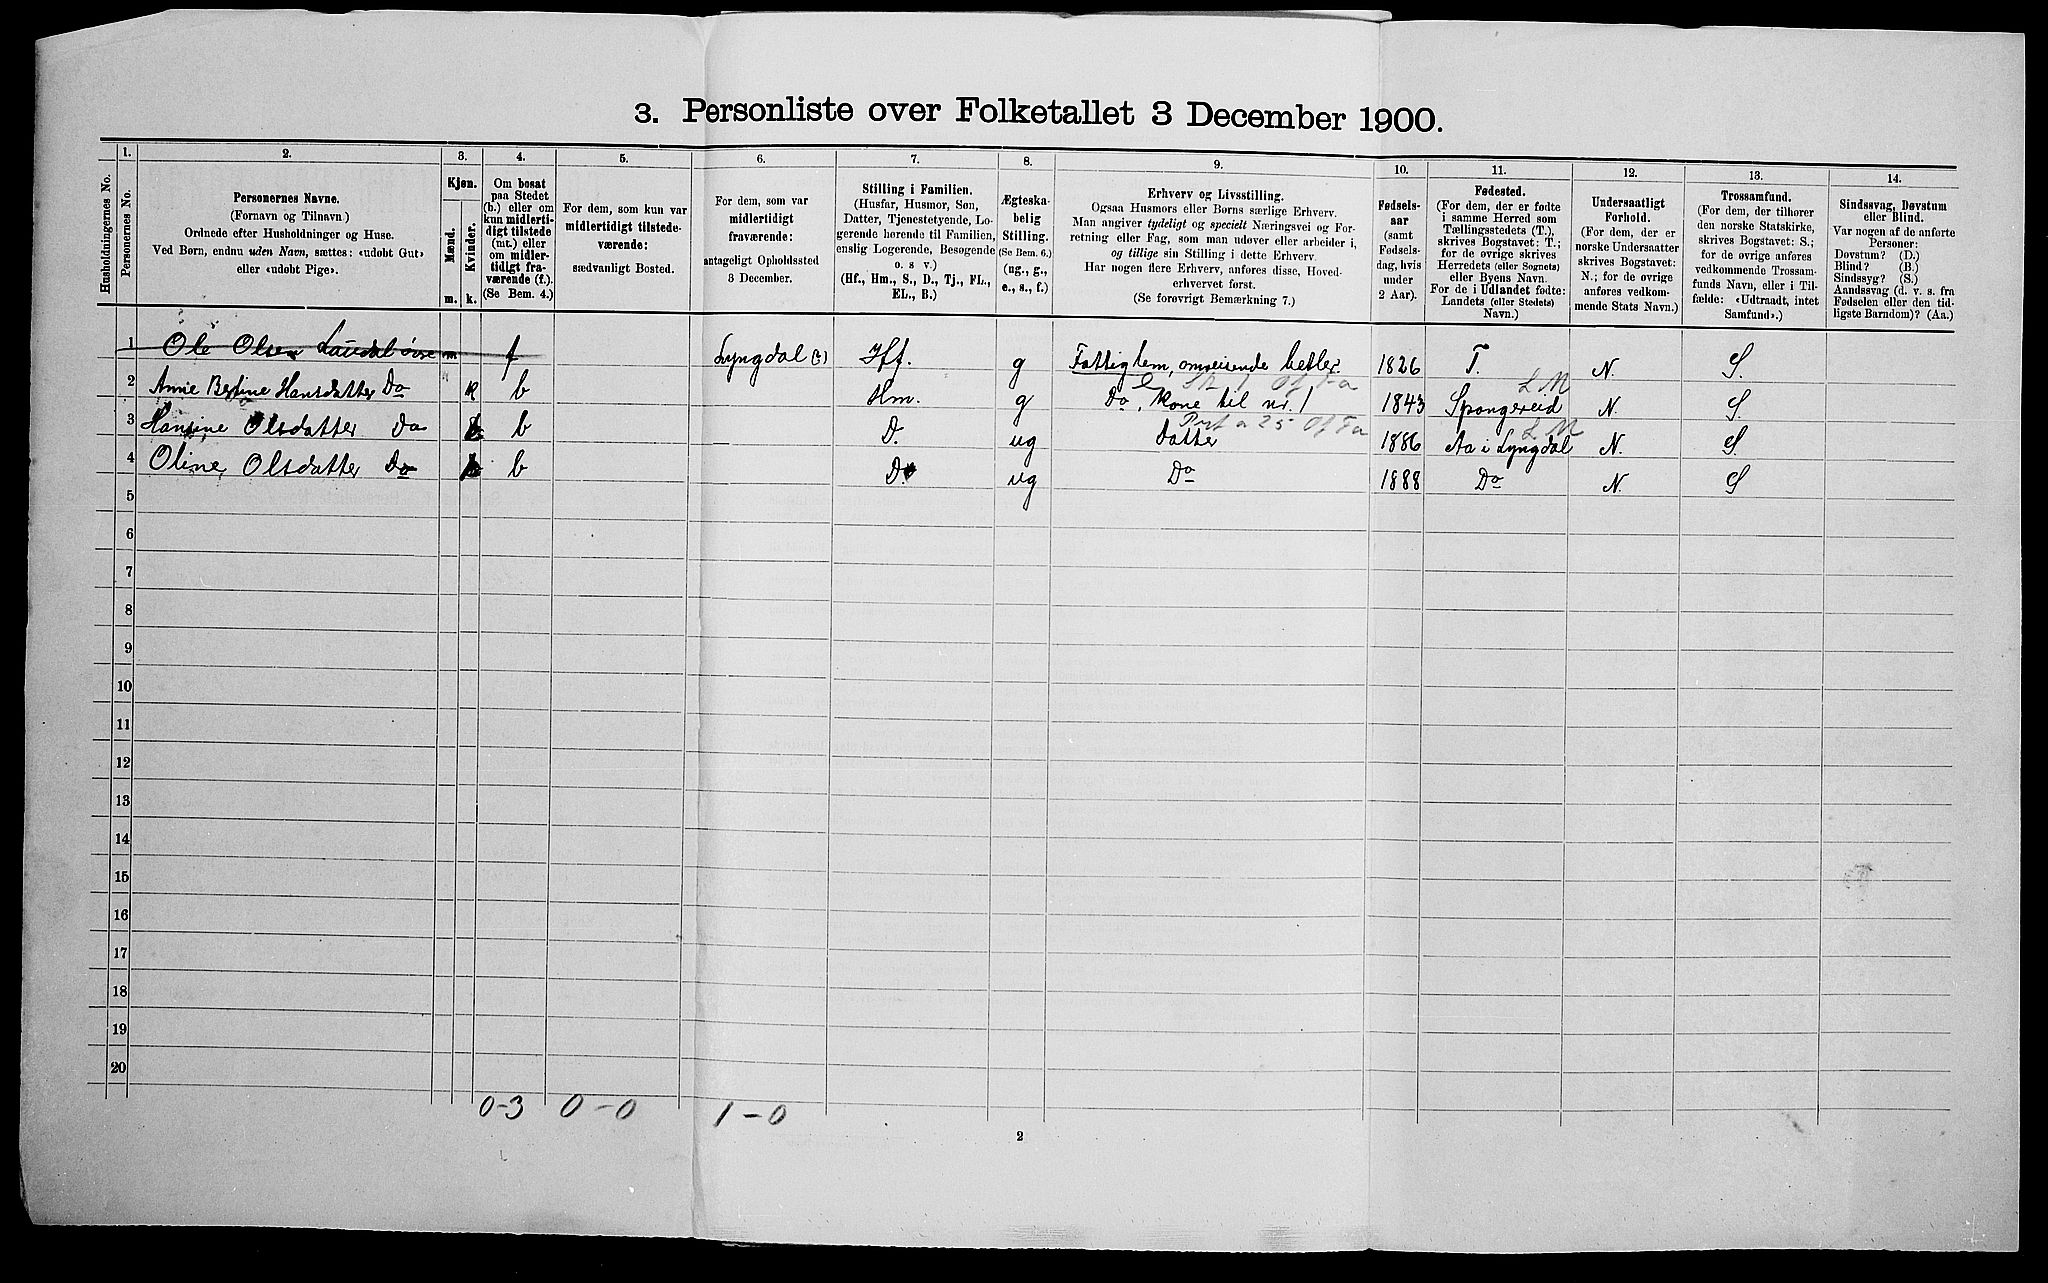 3. Personliste over Folketallet 3 December 1900.
1. 2. 3. 4. 5. 6. 7. 8. 9. 10. 11. 12. 13. 14.
Husholdningernes No.
Personernes No.
Personernes Navne.
(Fornavn og Tilnavn.)
Ordnede efter Husholdninger og Huse.
Ved Børn, endnu uden Navn, sættes: «udøbt Gut»
eller «udøbt Pige».
Kjøn.
Mænd.
Kvinder.
m. k.
Om bosat
paa Stedet
(b.) eller om
kun midlerti-
digt tilstede
(mt.) eller
om midler-
tidigt fra-
værende (f.).
(Se Bem. 4.)
For dem, som kun var
midlertidigt tilstede-
værende:
sædvanligt Bosted.
For dem, som var
midlertidigt
fraværende:
antageligt Opholdssted
3 December.
Stilling i Familien.
(Husfar, Husmor, Søn,
Datter, Tjenestetyende, Lo-
gerende hørende til Familien,
enslig Logerende, Besøgende
o. s v.)
(Hf., Hm., S., D., Tj., FL.,
EL., B.)
Ægteska-
belig
Stilling.
(Se Bem. 6.)
(ug., g.,
e., s., f.)
Erhverv og Livsstilling.
Ogsaa Husmors eller Børns særlige Erhverv.
Man angiver tydeligt og specielt Næringsvei og For-
retning eller Fag, som man udøver eller arbeider i,
og tillige sin Stilling i dette Erhverv.
Har nogen flere Erhverv, anføres disse, Hoved-
erhvervet først.
(Se forøvrigt Bemærkning 7.)
Fødsels-
aar
(samt
Fødsels-
dag, hvis
under
2 Aar).
Fødested.
(For dem, der er fødte
i samme Herred som
Tællingsstedets (T.),
skrives Bogstavet: T.;
for de øvrige skrives
Herredets (eller Sognets)
eller Byens Navn.
For de i Udlandet fødte:
Landets (eller Stedets)
Navn.)
Undersaatligt
Forhold.
(For dem, der er
norske Undersaatter
skrives Bogstavet:
N.; for de øvrige
anføres vedkom-
mende Stats Navn.)
Trossamfund.
(For dem, der tilhører
den norske Statskirke,
skrives Bogstavet: S.;
for de øvrige anføres
vedkommende Trossam-
funds Navn, eller i Til-
fælde: «Udtraadt, intet
Samfund».)
Sindssvag, Døvstum
eller Blind.
Var nogen af de anførte
Personer:
Døvstum? (D.)
Blind? (B.)
Sindssyg? (S.)
Aandssvag (d. v. s. fra
Fødselen eller den tid-
ligste Barndom)? (Aa.)
1 Ole Olsen Laudal øvre m f Lyngdal (?) Hf. g Fattiglem, omreisende betler 1826 T. N. S.
2 Anne Bertine Hansdatter Do k b Hm. g Do, Kone til nr. 1 1843 Spangereid L M N. S.
3 Hansine Olsdatter Do k b D. ug datter 1886 Aa i Lyngdal L M N. S.
4 Oline Olsdatter Do k b D. ug Do 1888 Do N. S
5
6
7
8
9
10
11
12
13
14
15
16
17
18
19
20
0-3 0-0 1-0
2